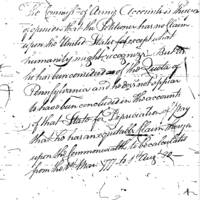 The Committee of Army Accounts is thereon
of opinion that the Petitioner has no claim
upon the United States (except what
humanity might recognize) But as
he has been considered as of the Quota of
Pennsylvania and he does not appear
to have been concluded in the accounts
of that State for Depreciation of Pay
that he has an equitable claim
upon the Commonwealth to be calculated
from the 1st Mar 777 to 1st Aug